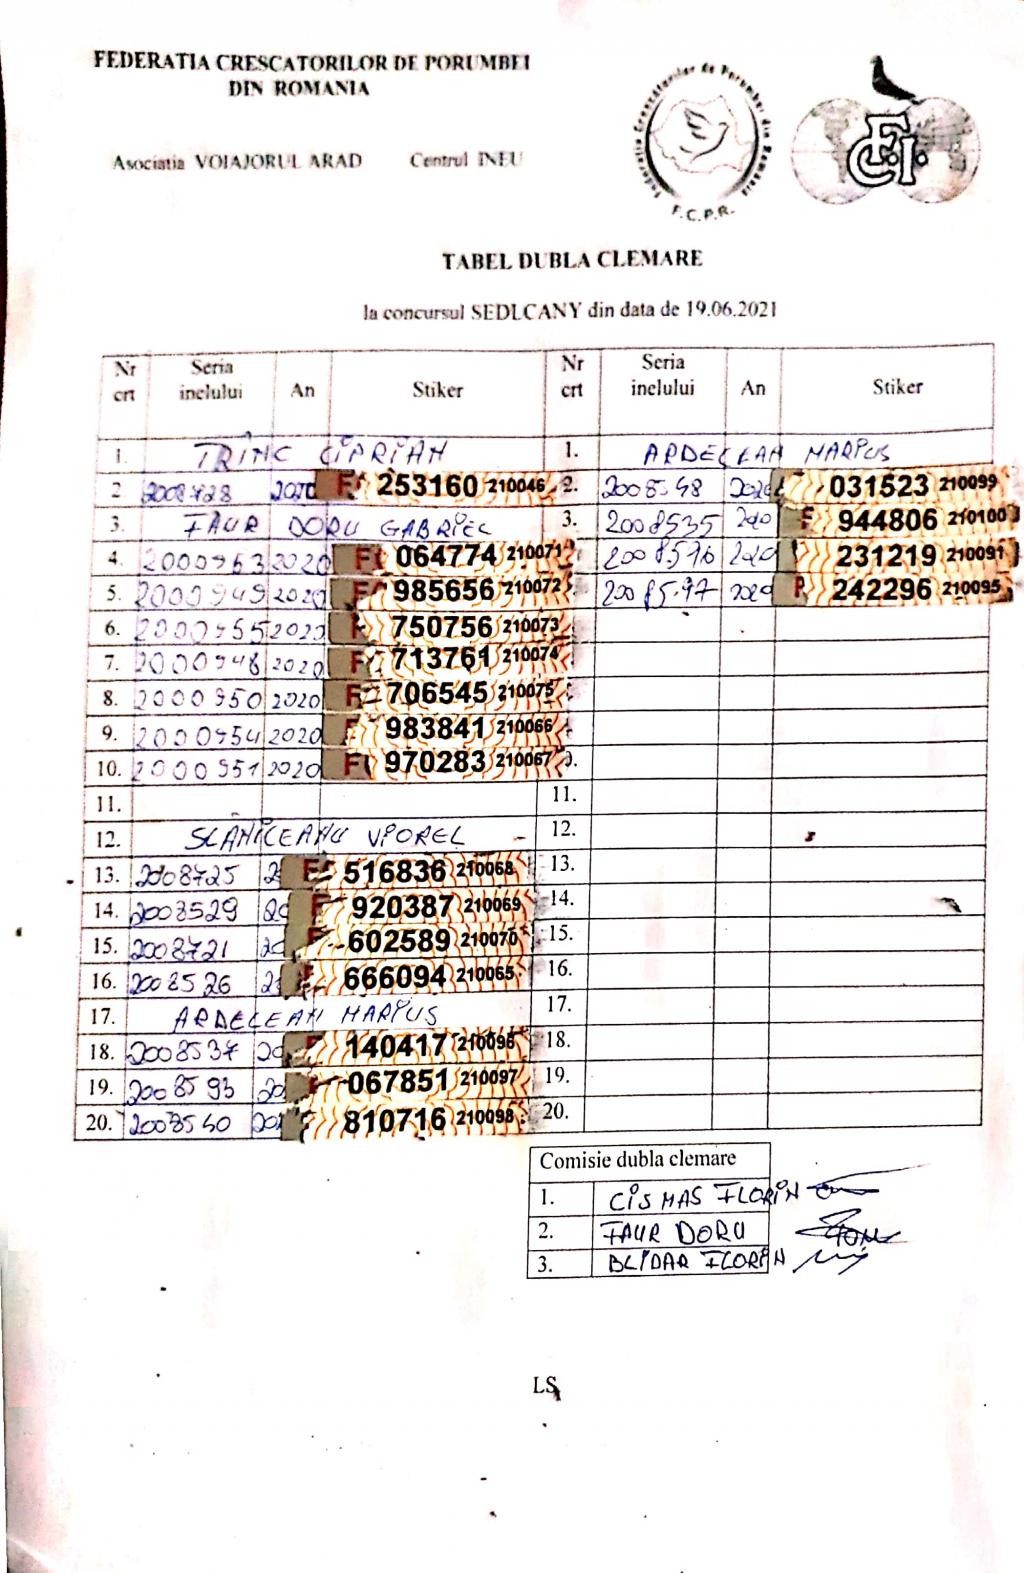 FEDERATIA CRESCATORILOR DE PORUMBEI
DIN ROMANIA
Federatia Crescatorilor de Porumbei din Romania
F.C.P.R.
F.C.I.
Asociatia VOIAJORUL ARAD Centrul INEU
TABEL DUBLA CLEMARE
la concursul SEDLCANY din data de 19.06.2021
Nr crt Seria inelului An Stiker Nr crt Seria inelului An Stiker
1. TRINC CIPRIAN 1. ARDELEAN MARIUS
2 2008728 2020 253160 210046 2. 2008548 2020 031523 210099
3. FAUR DORU GABRIEL 3. 2008535 2020 F 944806 210100
4. 2000953 2020 F 064774 210071 2008576 2020 231219 210091
5. 2000949 2020 F 985656 210072 2008597 2020 242296 210095
6. 2000955 2020 750756 210073
7. 2000948 2020 F 713761 210074
8. 2000950 2020 F 706545 210075
9. 2000954 2020 983841 210066
10. 2000951 2020 F 970283 210067
11. 11.
12. SLANICEANU VIOREL 12.
13. 2008725 516836 210068 13.
14. 2008529 920387 210069 14.
15. 2008721 602589 210070 15.
16. 2008526 666094 210065 16.
17. ARDELEAN MARIUS 17.
18. 2008537 140417 18.
19. 2008593 067851 210097 19.
20. 2008540 810716 210098 20.
Comisie dubla clemare
1. CISMAS FLORIN
2. FAUR DORU
3. BLIDAR FLORIN
LS